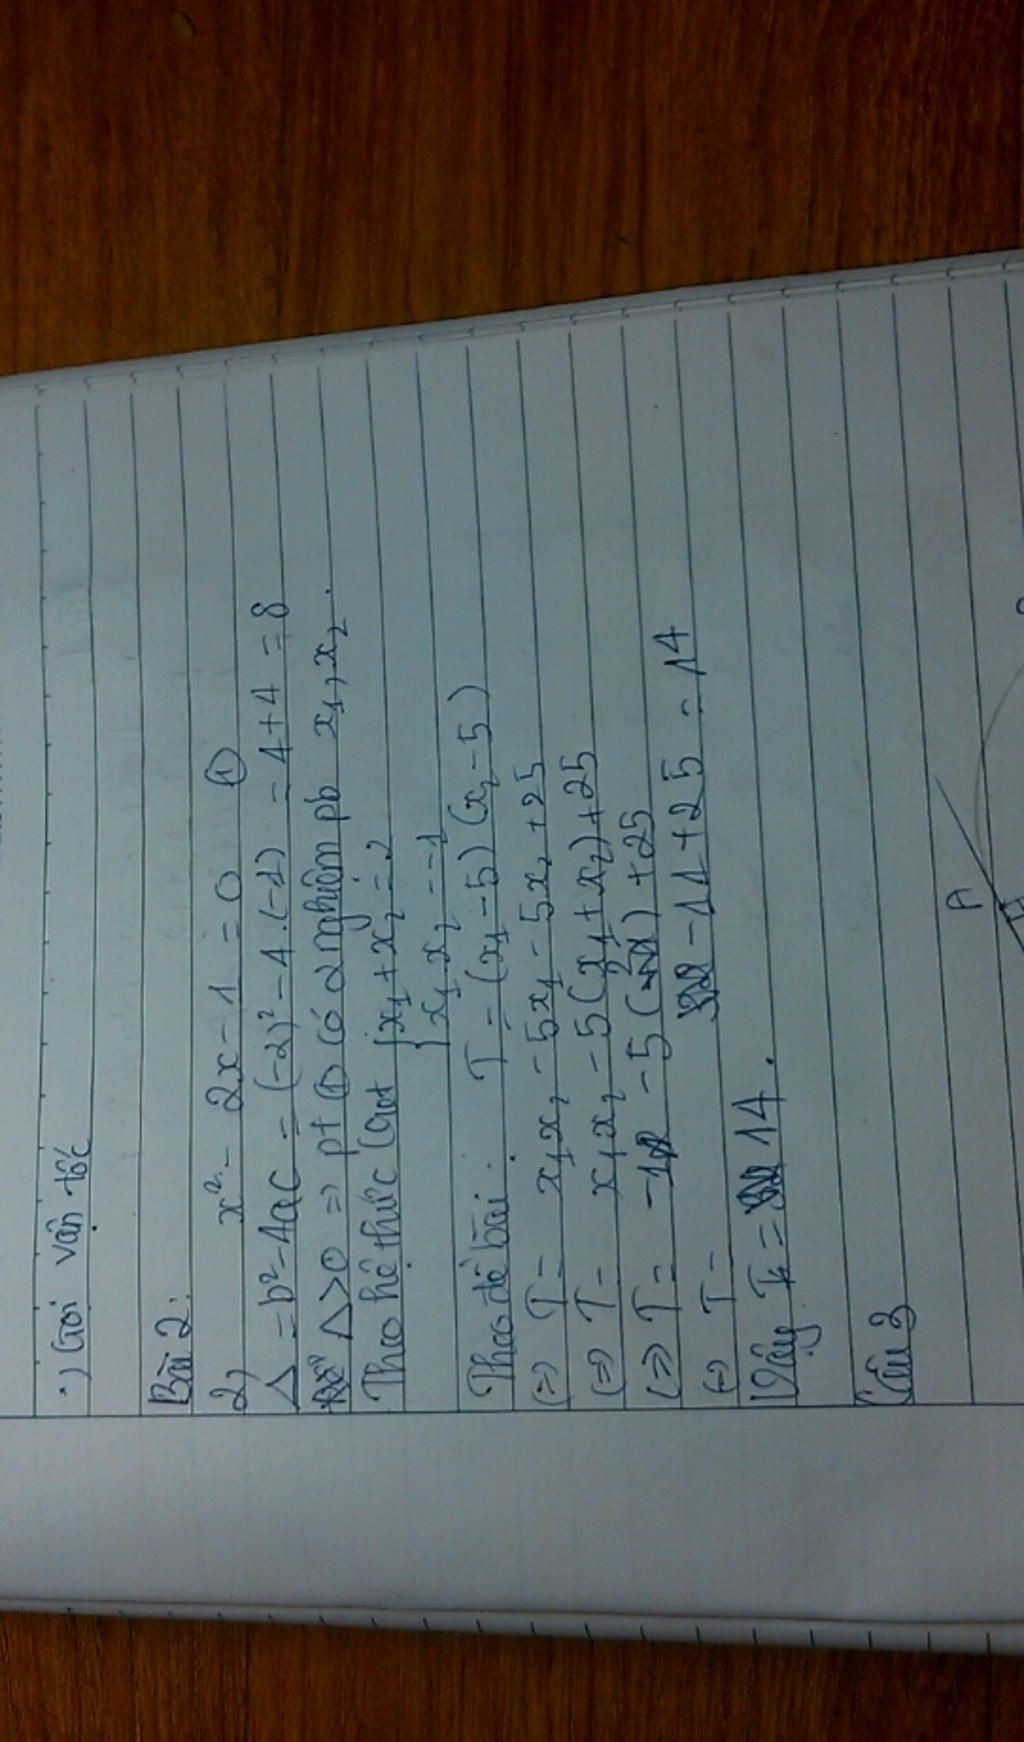 ·) Gọi vận tốc
Bài 2:
2) x² - 2x - 1 = 0 ①
Δ = b² - 4ac = (-2)² - 4.(-1) = 4 + 4 = 8
Δ > 0 => pt ① có 2 nghiệm pb x₁, x₂.
Theo hệ thức { x₁ + x₂ = 2
{ x₁ x₂ = -1
Theo đề bài: T = (x₁ - 5)(x₂ - 5)
(=) T = x₁x₂ - 5x₁ - 5x₂ + 25
(=) T = x₁x₂ - 5(x₁ + x₂) + 25
(=) T = -1 - 5(2) + 25
(=) T = - 11 + 25 = 14
Vậy T = 14.
Câu 3
A
H